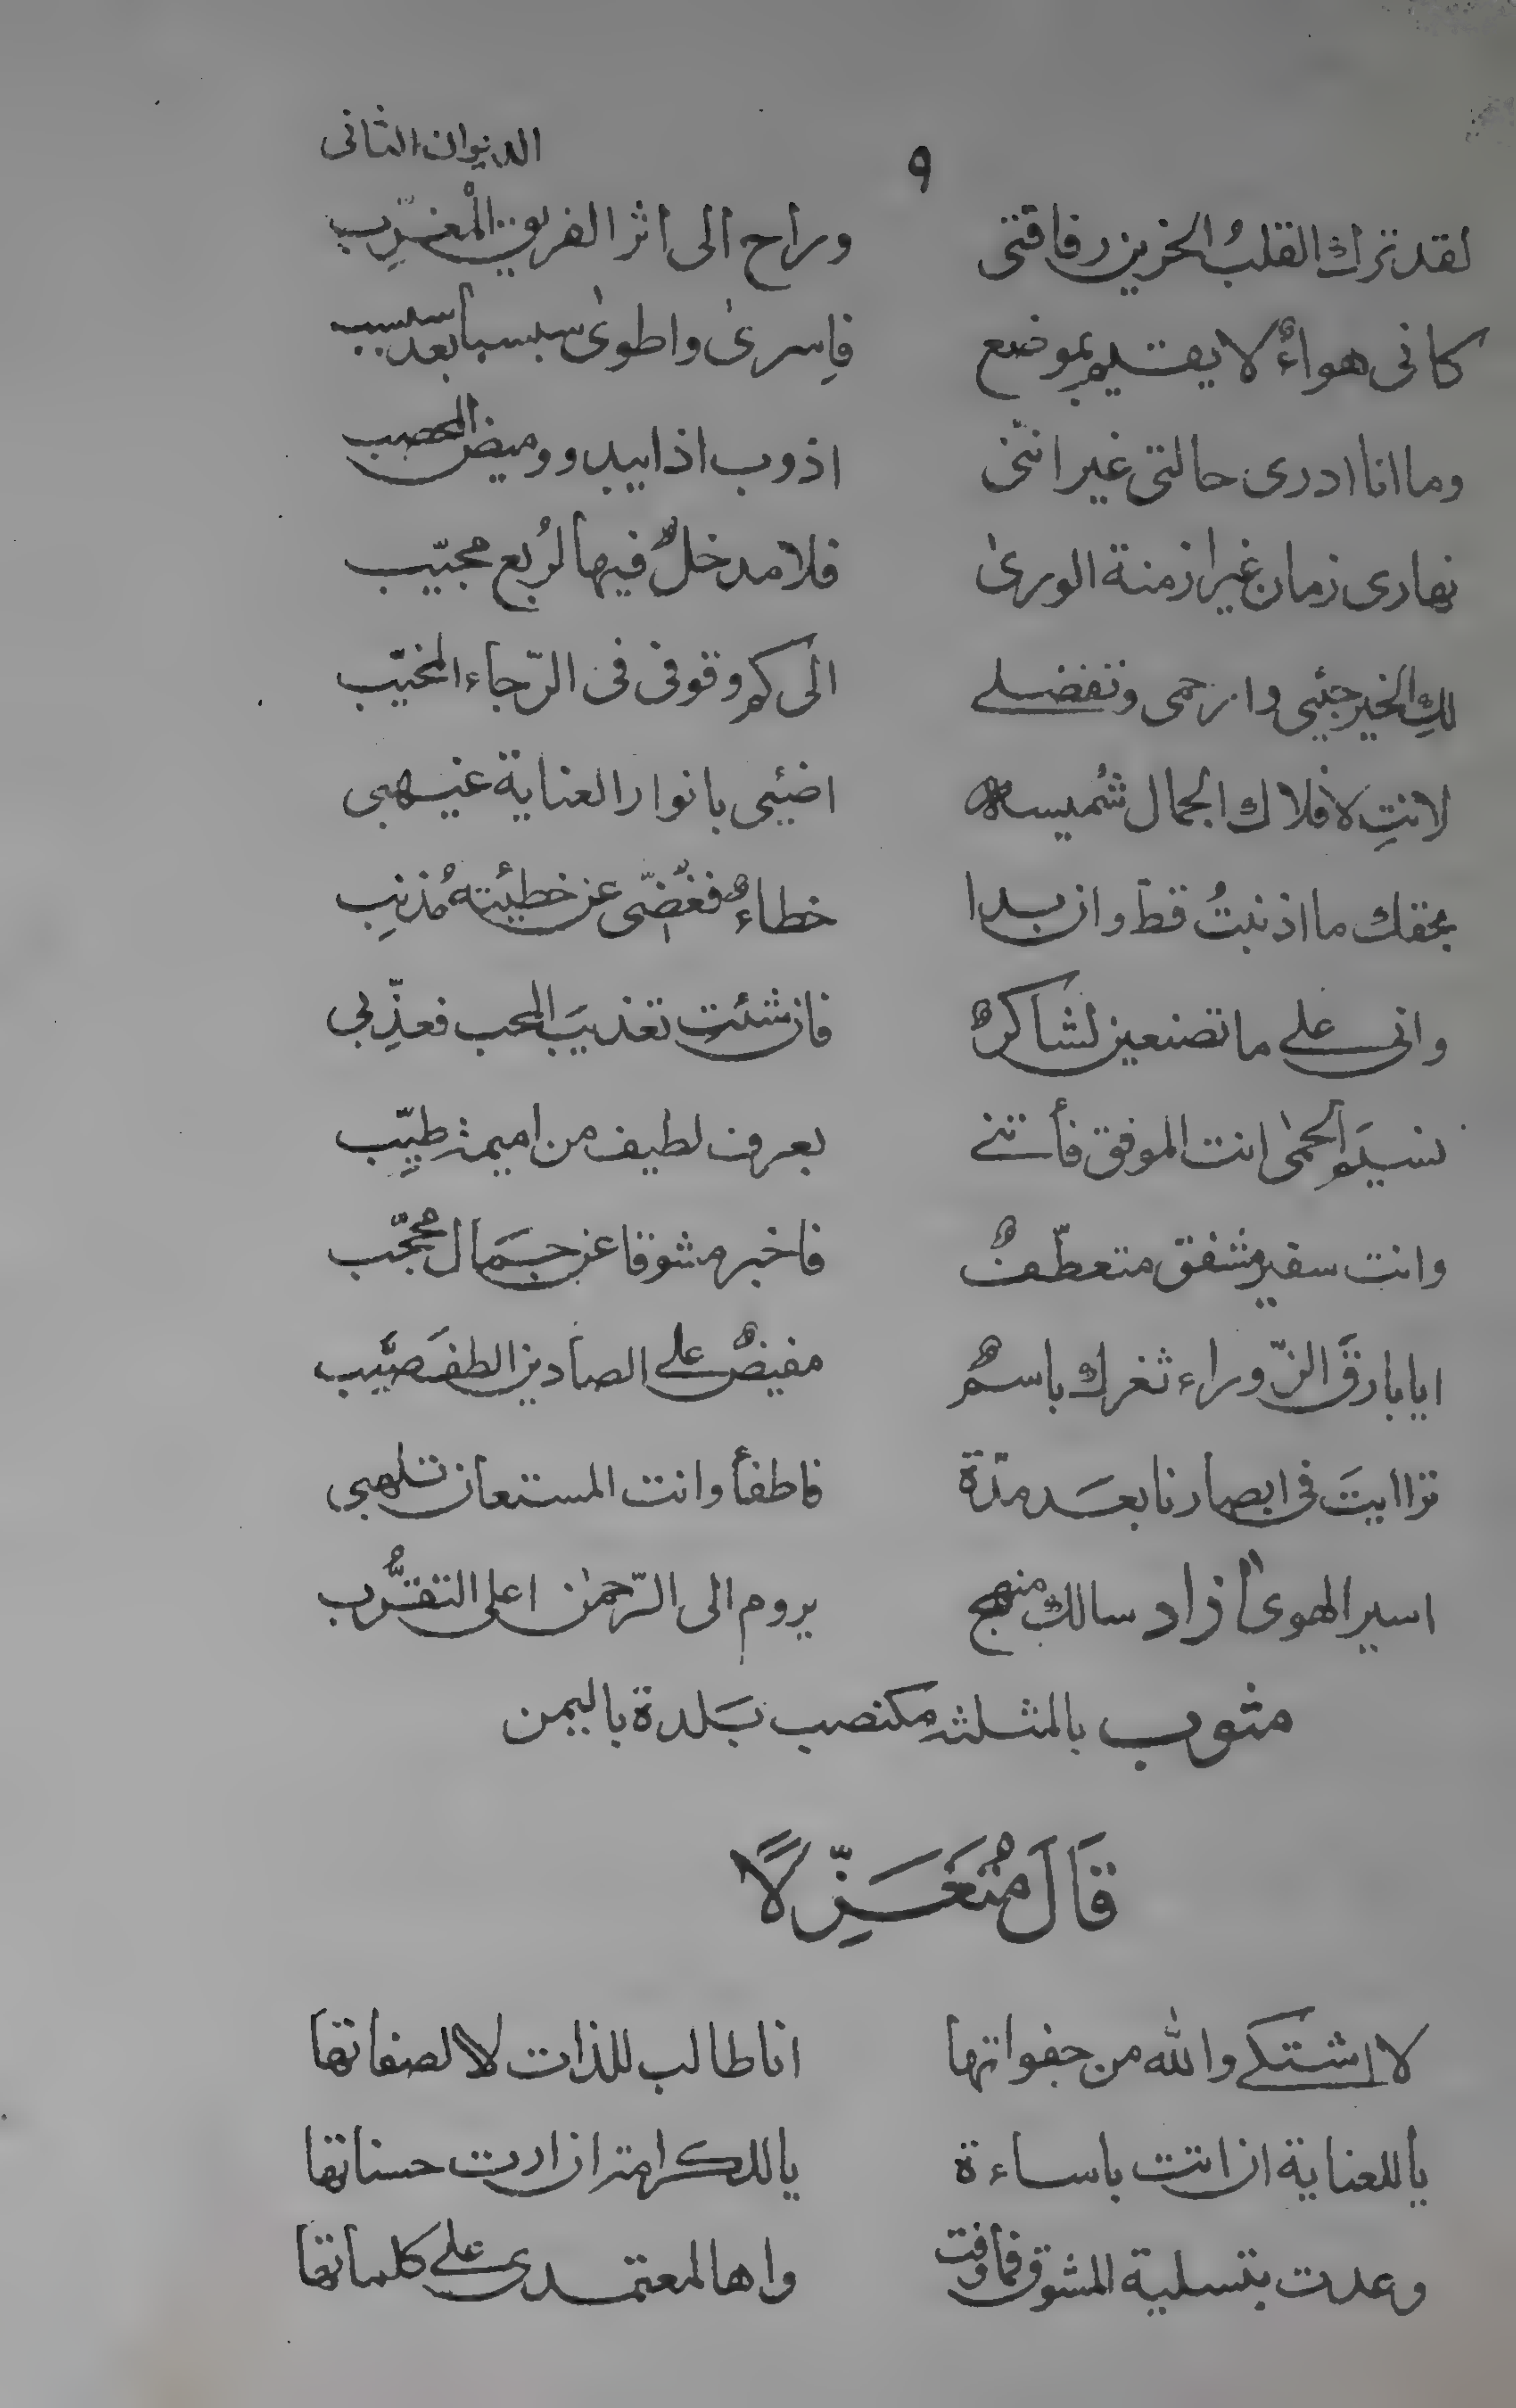 ٩ الديوان الثانى
لقد ترك القلبُ الحزين رفاقتى وراح الى اثر الفريق الْمغرِّب
كانى هواءٌ لا يقيم بموضع فاسرى واطوى سبسبا بعد سبسب
وما انا ادرى حالتى غير اننى اذوب اذا يبدو وميض المحصب
نهارى زمان غير ازمنة الورىٰ فلا مدخلٌ فيها لرُبع مجيّب
لكِ الخير جيئى وارحمى وتفضلے الى كم وقوفى فى الرّجاء المخيّب
لانتِ لافلاك الجمال شُميسةٌ اضيئى بانوار العناية غيهبى
بحقك ما اذنبتُ قط وان بدا خطاءٌ فغُضّى عن خطيئته مُذنبِ
وانى علے ما تصنعين لشاكرٌ فان شئتِ تعذيبَ المحب فعذِّبى
نسيمَ الحمىٰ انت الموفق فأتنے بعرف لطيف من اميمة طيّبِ
وانت سفير مشفق متعطّفٌ فاخبر مشوقا عن جمَال محجّب
ايا بارقَ الزّوراء ثغرك باسمٌ مفيضٌ علے الصادين الطفَ صيّب
تراايتَ فى ابصارنا بعَد مدّة فاطفأ وانت المستعان تلهبى
اسير الهوىٰ أزاد سالكٌ منهج يروم الى الرّحمٰن اعلى التقرُّب
مثوب بالمثلثة كمنصب بَلدة باليمن
قَالَ مُتَغَزِّلًا
لا اشتكے والله من جفواتها انا طالب للذات لا لصفاتها
يا للعناية ان اتت باساءة يا للكرامة ان ارت حسناتها
وعدت بتسلية المشوق فما وفت واها لمعتمدى علے كلماتها